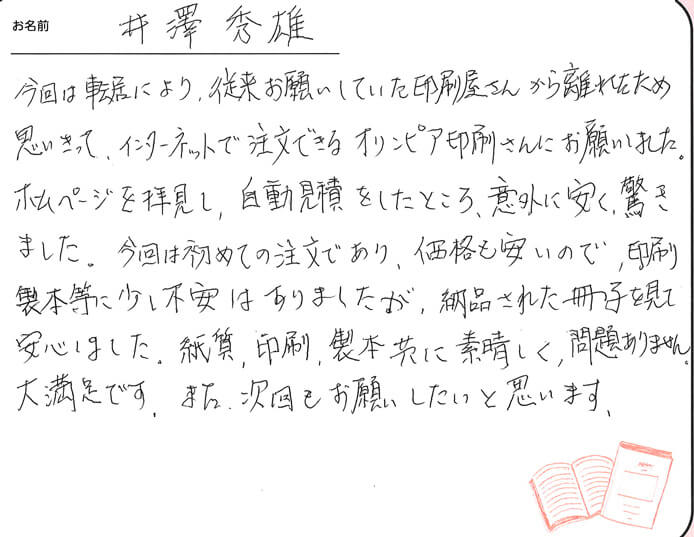 お名前 井澤秀雄
今回は転居により、従来お願いしていた印刷屋さんから離れたため
思いきって、インターネットで注文できるオリンピア印刷さんにお願いしました。
ホームページを拝見し、自動見積をしたところ、意外に安く、驚き
ました。今回は初めての注文であり、価格も安いので、印刷
製本等に少し不安はありましたが、納品された冊子を見て
安心しました。紙質、印刷、製本共に素晴しく、問題ありません。
大満足です、また、次回もお願いしたいと思います、